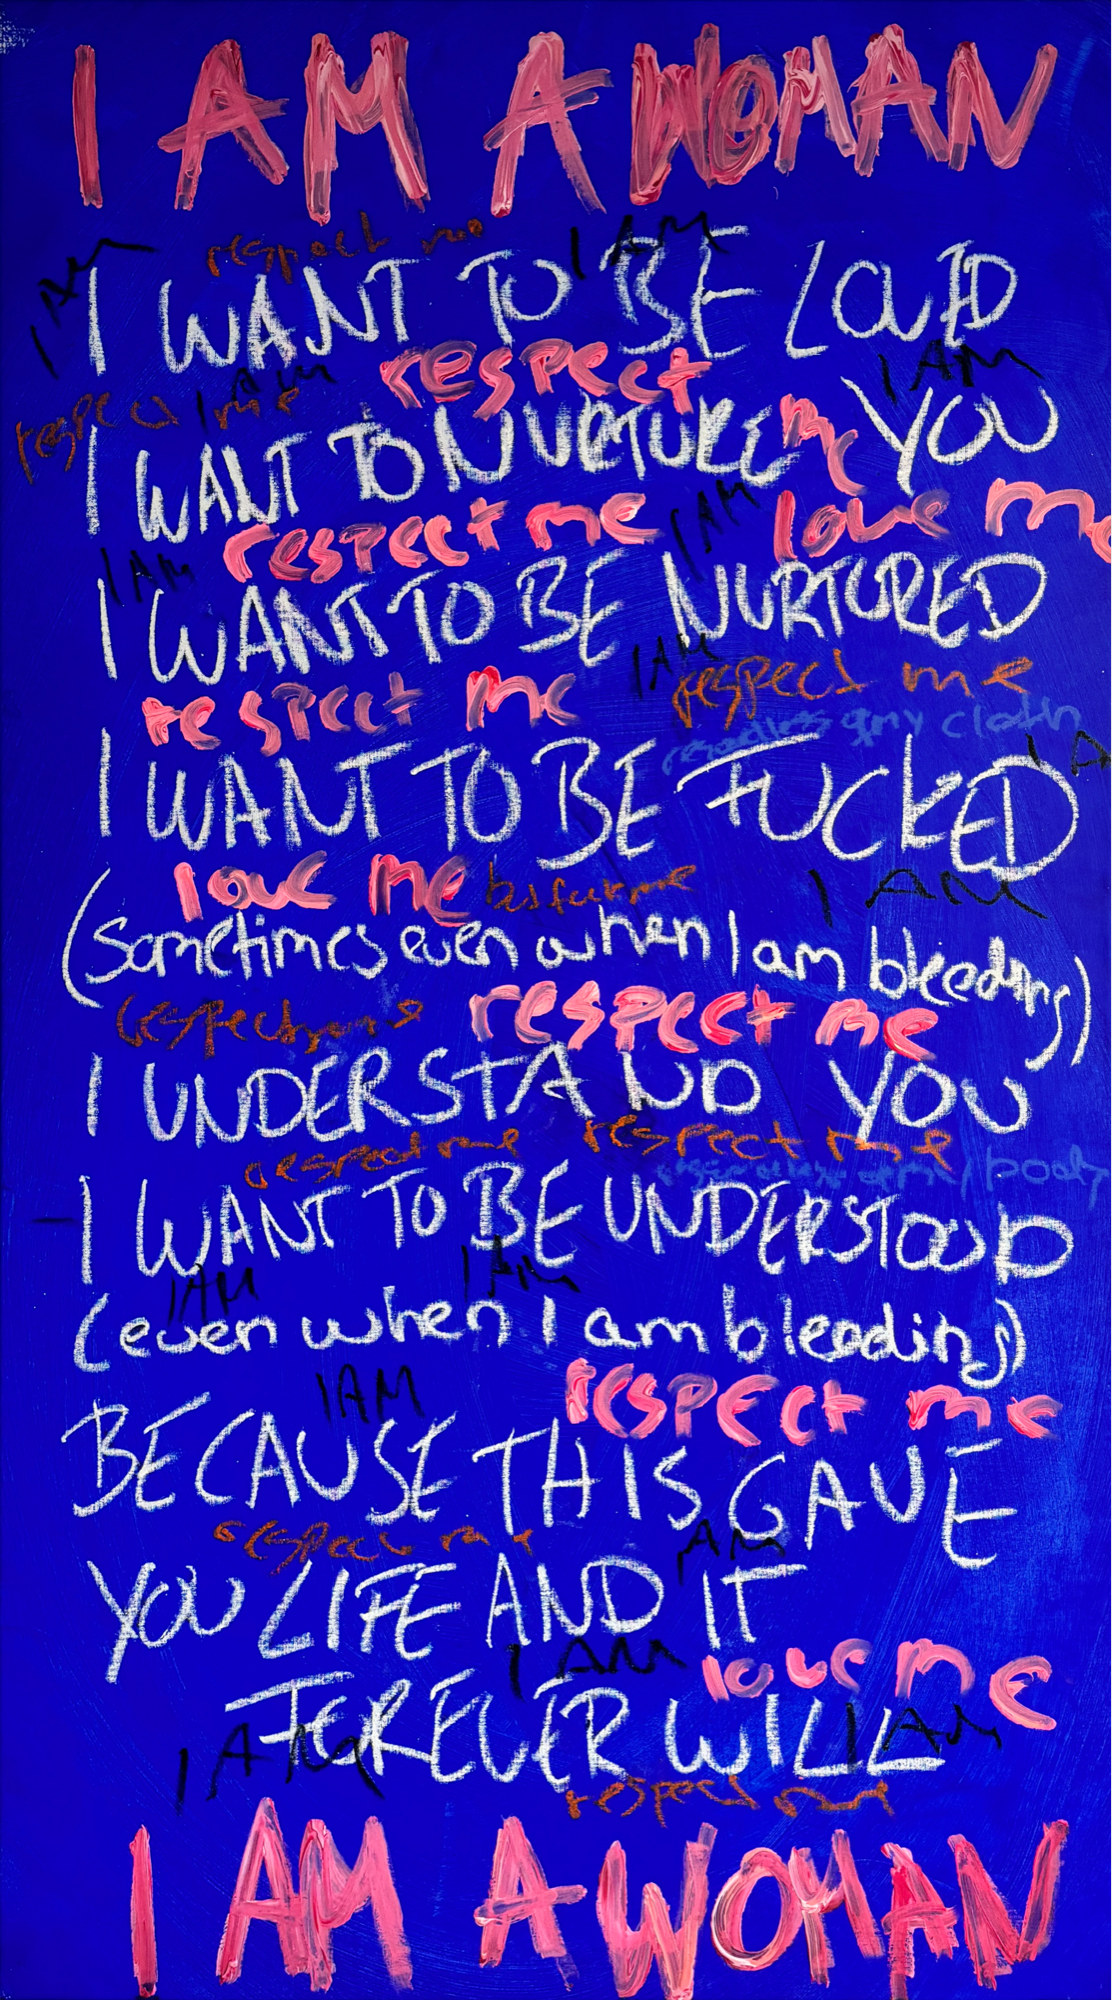 I AM A WOMAN
respect me
I AM
I AM
I WANT TO BE LOUD
respect me
I AM
respect me
I AM
I WANT TO NURTURE YOU
respect me
I AM
love me
I AM
I WANT TO BE NURTURED
I AM
respect me
respect me
my cloth
I A
I WANT TO BE FUCKED
love me
I AM
(sometimes even when I am bleeding)
respect me
respect me
I UNDERSTAND YOU
respect me respect me
body
I WANT TO BE UNDERSTOOD
I AM
I AM
(even when I am bleeding)
I AM
respect me
BECAUSE THIS GAVE
respect me
AM
YOU LIFE AND IT
I AM
love me
FOREVER WILL
I AM
I AM
respect me
I AM A WOMAN